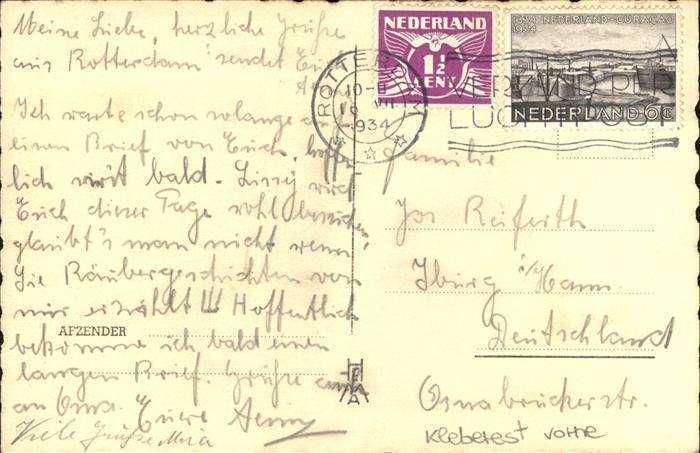 Meine Liebe, herzliche Grüße
aus Rotterdam sendet
Ich warte schon solange
einen Brief von Euch, hoffent
lich wird's bald. Lissy wird
Euch dieser Tage wohl besuchen
glaubt's man nicht wenn
Sie Räubergeschichten von
mir erzählt !!! Hoffentlich
AFZENDER
bekomme ich bald einen
langen Brief. Grüße auch
an Oma. Eure
Viele Grüße Mia
NEDERLAND
1½
CENT
1634 NEDERLAND-CURAÇAO
1934
NEDERLAND 6c
ROTTERDAM
10-
VII
1934
VERZEND PER
LUCHTPOST
Familie
Jos Reiferth
Iburg i/Hann.
Deutschland
Osnabrückerstr.
Kleberest vorne